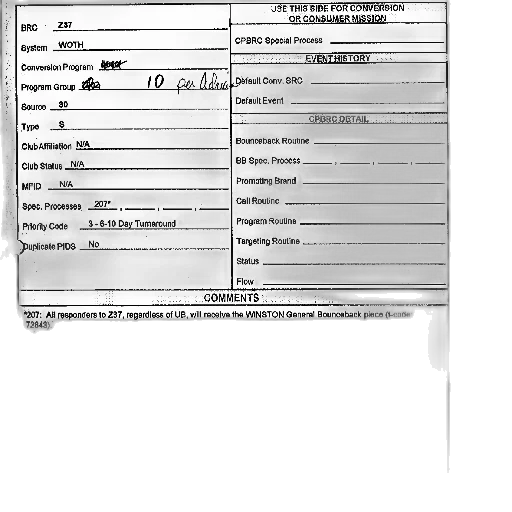 USE THIS SIDE FOR CONVERSION
OR CONSUMER MISSION
BRC Z37
System WOTH
CPBRC Special Process
EVENT HISTORY
Conversion Program
Program Group 10 per
Default Conv. SRC
Source 30
Default Event
CPBRC DETAIL
Type S
Club Affiliation N/A
Bounceback Routine
Club Status N/A
BB Spec. Process , , ,
MPID N/A
Promoting Brand
Spec. Processes 207* , , ,
Call Routine
Priority Code 3 - 6-10 Day Turnaround
Program Routine
Duplicate PIDS No
Targeting Routine
Status
Flow
COMMENTS
*207: All responders to Z37, regardless of UB, will receive the WINSTON General Bounceback piece (t-code
72843).